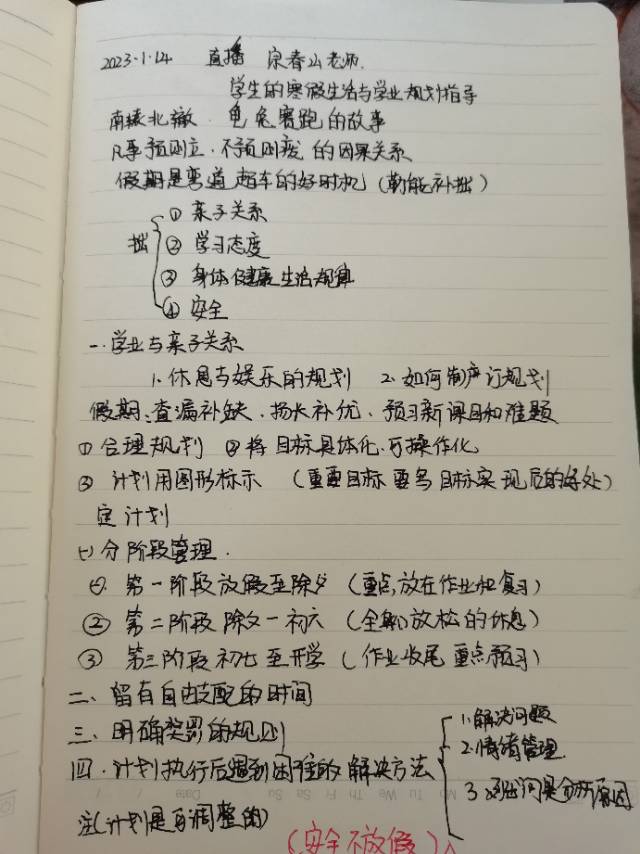 2023.1.14 直播 宗春山老师.
学生的寒假生活与学业规划指导
南辕北辙 龟兔赛跑的故事
凡事预则立.不预则废 的因果关系
假期是弯道超车的好时机 (勤能补拙)
拙 ① 亲子关系
② 学习态度
③ 身体健康 生活规律
④ 安全
一.学业与亲子关系
1.休息与娱乐的规划 2.如何制订规划
假期:查漏补缺.扬长补优.预习新课目和难题
①合理规划 ②将目标具体化.可操作化
③ 计划用图形标示 (重要目标 要写 目标实现后的好处)
定计划
(一)分阶段管理.
①. 第一阶段 放假至除夕 (重点,放在作业和复习)
② 第二阶段 除夕一初六 (全部放松的休息)
③ 第三阶段 初七至开学 (作业收尾 重点预习)
二、留有自由支配的时间
三、明确奖罚的规则
四.计划执行后遇到困难的解决方法
1.解决问题
2.情绪管理
3.列出问题分析原因
注(计划是可调整的)
(安全不放假)
Mo Tu We Th Fr Sa Su
Date / /